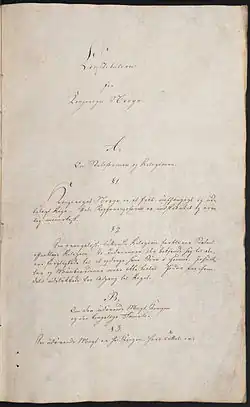 Constitution
for
Kongeriget Norge.
A.
Om Statsformen og Religionen.
§1
Kongeriget Norge er et frit, uafhængigt og ude-
leligt Rige. Dets Regjeringsform er indskrænket og arve-
lig monarkisk.
§2
Den evangelisk-lutterske Religion forbliver Statens
offentlige Religion. De Indvaanere, der bekjende sig til den,
ere forpligtede til at opdrage sine Børn i samme. Jesuit-
ter og Munkeordener maae ikke taales. Jøder ere frem-
deles udelukkede fra Adgang til Riget.
B.
Om den udøvende Magt, Kongen
og den kongelige Familie.
§3.
Den udøvende Magt er hos Kongen. Hans Tittel er: